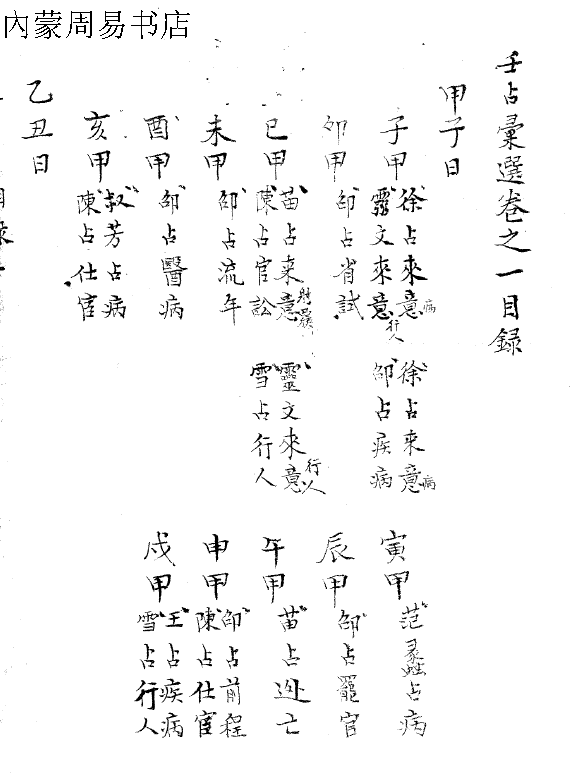 內蒙周易书店
壬占彙選卷之一目錄
甲子日
子甲
徐占來意病
靈文來意行人
徐占來意病
邵占疾病
寅甲
范蠡占病
卯甲
邵占省試
辰甲
邵占罷官
巳甲
苗占来意射覆
陳占官訟
靈文來意行人
雪占行人
午甲
苗占逃亡
未甲
邵占流年
申甲
邵占前程
陳占仕宦
酉甲
邵占醫病
戌甲
王占疾病
雪占行人
亥甲
叔芳占病
陳占仕宦
乙丑日